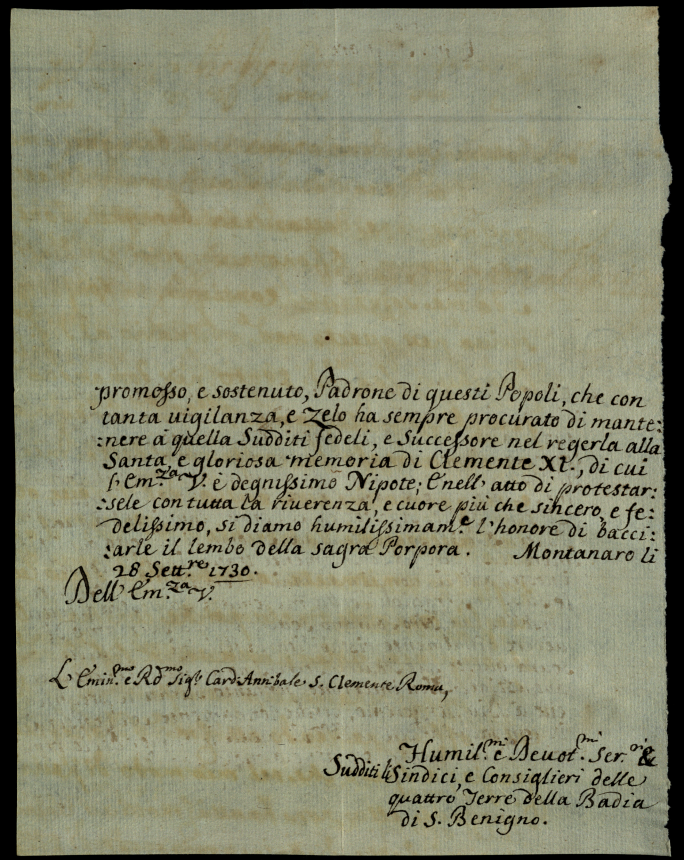 promosso, e sostenuto, Padrone di questi Popoli, che con
tanta uigilanza, e Zelo ha sempre procurato di mante:
:nere à quella Sudditi fedeli, e Successore nel regerla alla
Santa, e gloriosa memoria di Clemente XI., di cui
l'Em.za V. è degnissimo Nipote; E nell'atto di protestar:
:sele con tutta la riuerenza, e cuore più che sincero, e fe:
delissimo, si diamo humilissimam.e l'honore di bacci:
:arle il lembo della sagra Porpora. Montanaro li
28 Sett.re 1730.
Dell'Em.za V.
L'Emin.mo e R.dmo Sig.r Card. Annibale S. Clemente Roma,
Humil.mi e Deuot.mi Ser.ri &
Sudditi li Sindici, e Consiglieri delle
quattro Terre della Badia
di S. Benigno.